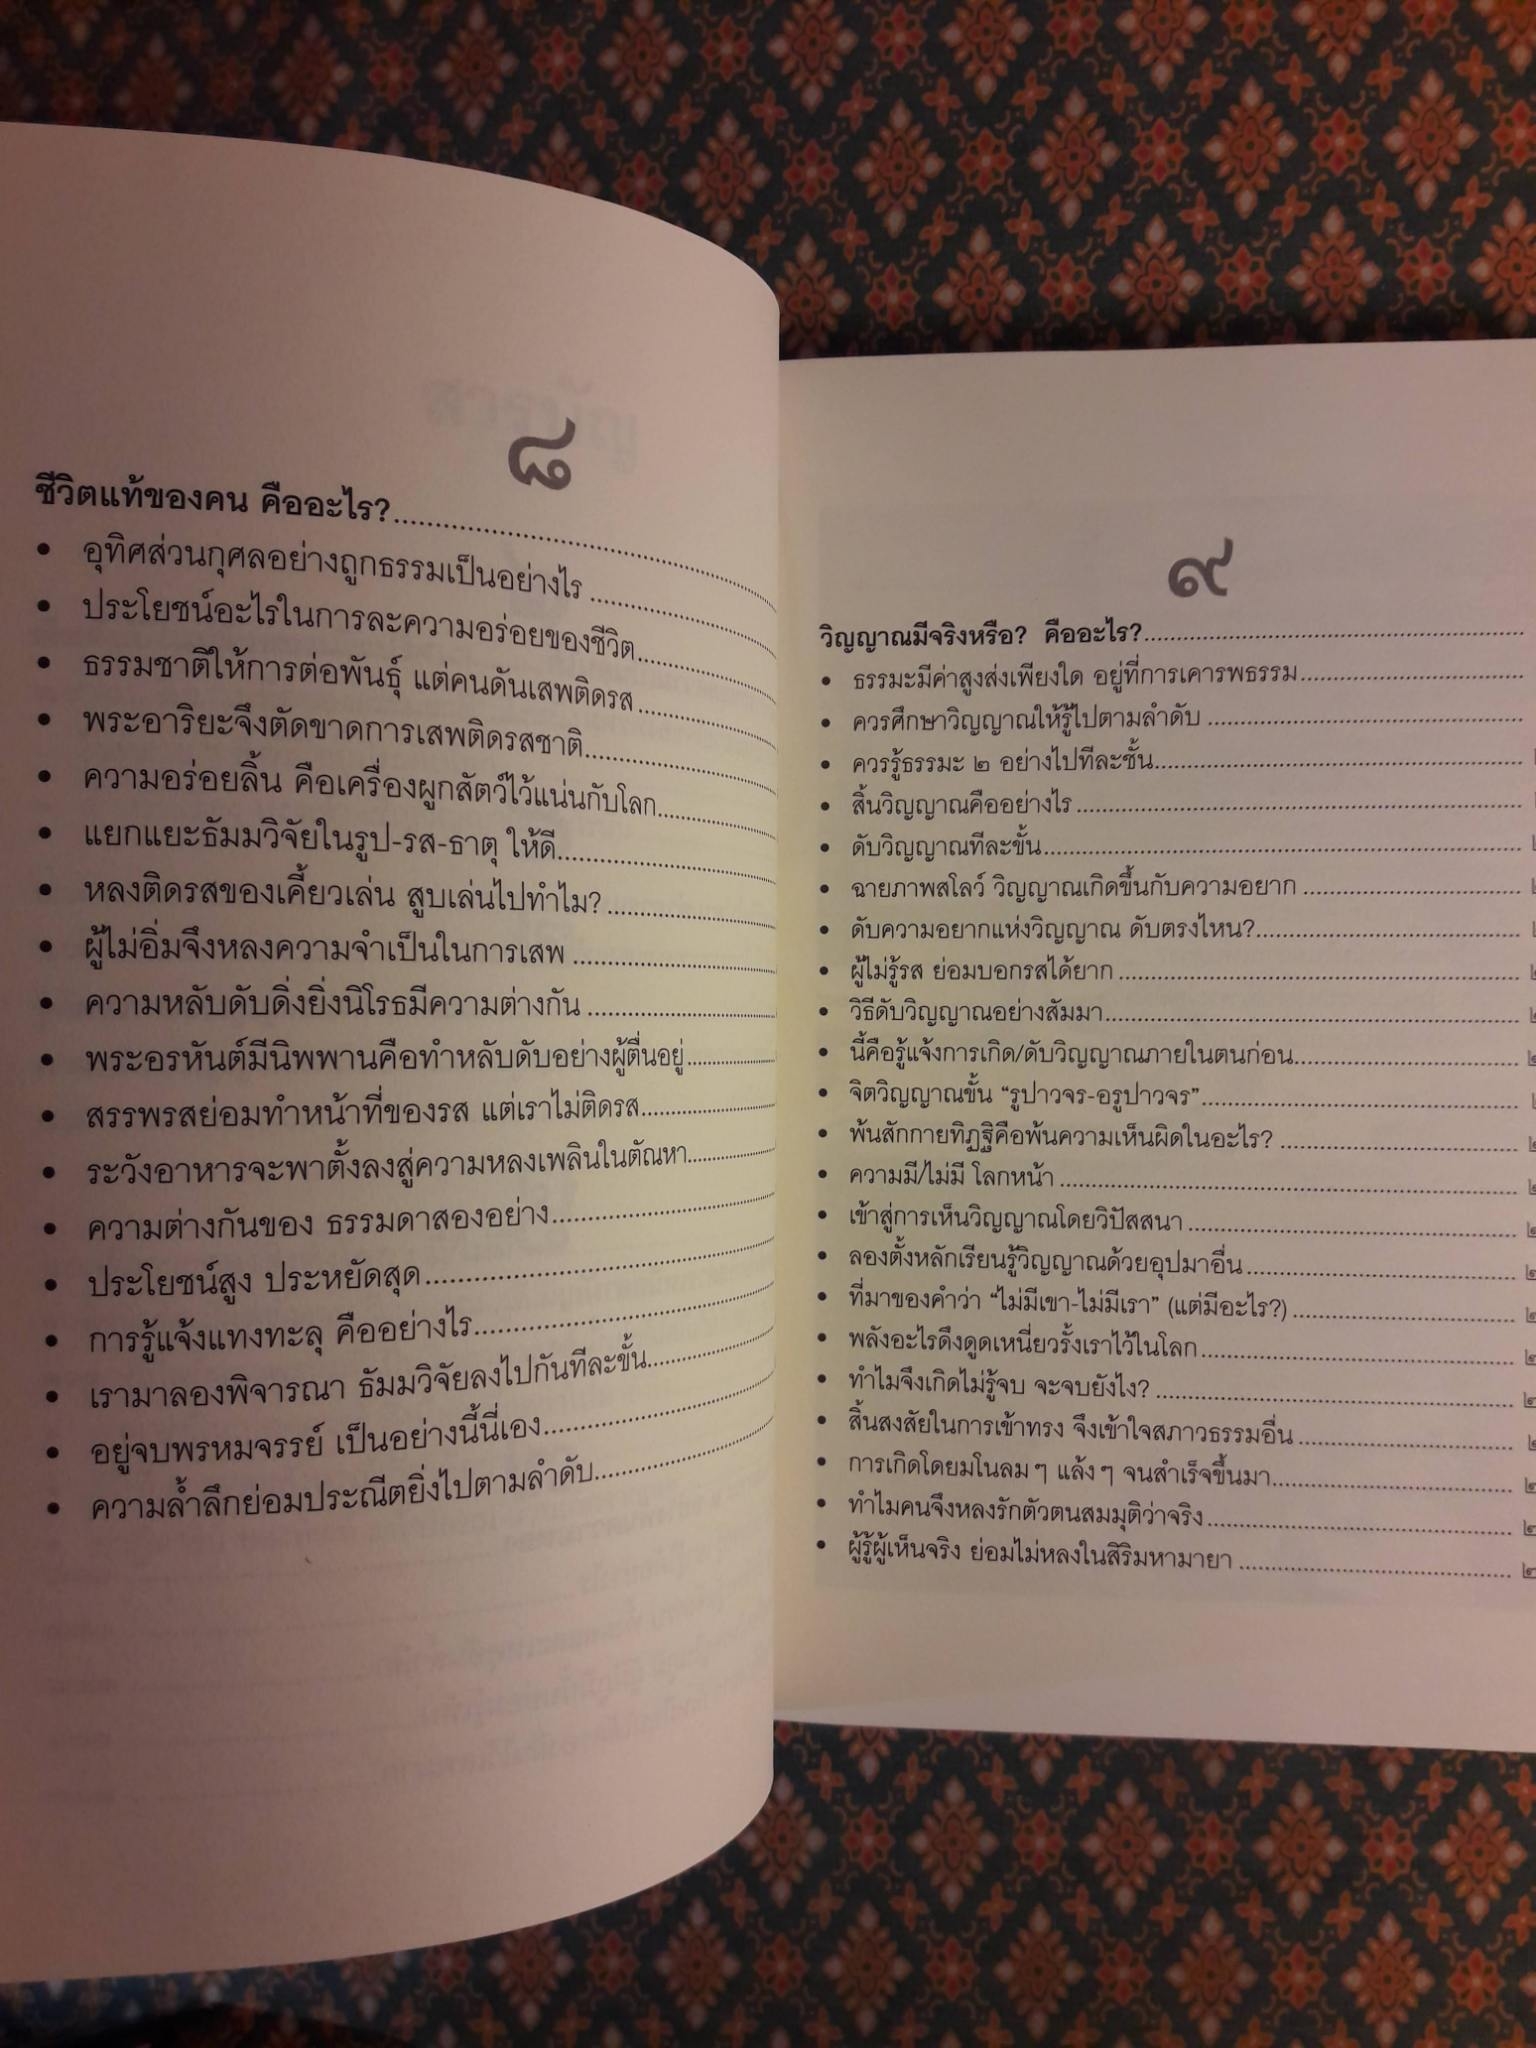 ๘
ชีวิตแท้ของคน คืออะไร?
• อุทิศส่วนกุศลอย่างถูกธรรมเป็นอย่างไร
• ประโยชน์อะไรในการละความอร่อยของชีวิต
• ธรรมชาติให้การต่อพันธุ์ แต่คนดันเสพติดรส
• พระอาริยะจึงตัดขาดการเสพติดรสชาติ
• ความอร่อยลิ้น คือเครื่องผูกสัตว์ไว้แน่นกับโลก
• แยกแยะธัมมวิจัยในรูป-รส-ธาตุ ให้ดี
• หลงติดรสของเคี้ยวเล่น สูบเล่นไปทำไม?
• ผู้ไม่อิ่มจึงหลงความจำเป็นในการเสพ
• ความหลับดับดิ่งยิ่งนิโรธมีความต่างกัน
• พระอรหันต์มีนิพพานคือทำหลับดับอย่างผู้ตื่นอยู่
• สรรพรสย่อมทำหน้าที่ของรส แต่เราไม่ติดรส
• ระวังอาหารจะพาตั้งลงสู่ความหลงเพลินในตัณหา
• ความต่างกันของ ธรรมดาสองอย่าง
• ประโยชน์สูง ประหยัดสุด
• การรู้แจ้งแทงทะลุ คืออย่างไร
• เรามาลองพิจารณา ธัมมวิจัยลงไปกันทีละขั้น
• อยู่จบพรหมจรรย์ เป็นอย่างนี้นี่เอง
• ความล้ำลึกย่อมประณีตยิ่งไปตามลำดับ
๙
วิญญาณมีจริงหรือ? คืออะไร?
• ธรรมะมีค่าสูงส่งเพียงใด อยู่ที่การเคารพธรรม
• ควรศึกษาวิญญาณให้รู้ไปตามลำดับ
• ควรรู้ธรรมะ ๒ อย่างไปทีละชั้น
• สิ้นวิญญาณคืออย่างไร
• ดับวิญญาณทีละขั้น
• ฉายภาพสโลว์ วิญญาณเกิดขึ้นกับความอยาก
• ดับความอยากแห่งวิญญาณ ดับตรงไหน?
• ผู้ไม่รู้รส ย่อมบอกรสได้ยาก
• วิธีดับวิญญาณอย่างสัมมา
• นี้คือรู้แจ้งการเกิด/ดับวิญญาณภายในตนก่อน
• จิตวิญญาณขั้น “รูปาวจร-อรูปาวจร”
• พ้นสักกายทิฏฐิคือพ้นความเห็นผิดในอะไร?
• ความมี/ไม่มี โลกหน้า
• เข้าสู่การเห็นวิญญาณโดยวิปัสสนา
• ลองตั้งหลักเรียนรู้วิญญาณด้วยอุปมาอื่น
• ที่มาของคำว่า “ไม่มีเขา-ไม่มีเรา” (แต่มีอะไร?)
• พลังอะไรดึงดูดเหนี่ยวรั้งเราไว้ในโลก
• ทำไมจึงเกิดไม่รู้จบ จะจบยังไง?
• สิ้นสงสัยในการเข้าทรง จึงเข้าใจสภาวธรรมอื่น
• การเกิดโดยมโนลมๆ แล้งๆ จนสำเร็จขึ้นมา
• ทำไมคนจึงหลงรักตัวตนสมมุติว่าจริง
• ผู้รู้ผู้เห็นจริง ย่อมไม่หลงในสิริมหามายา